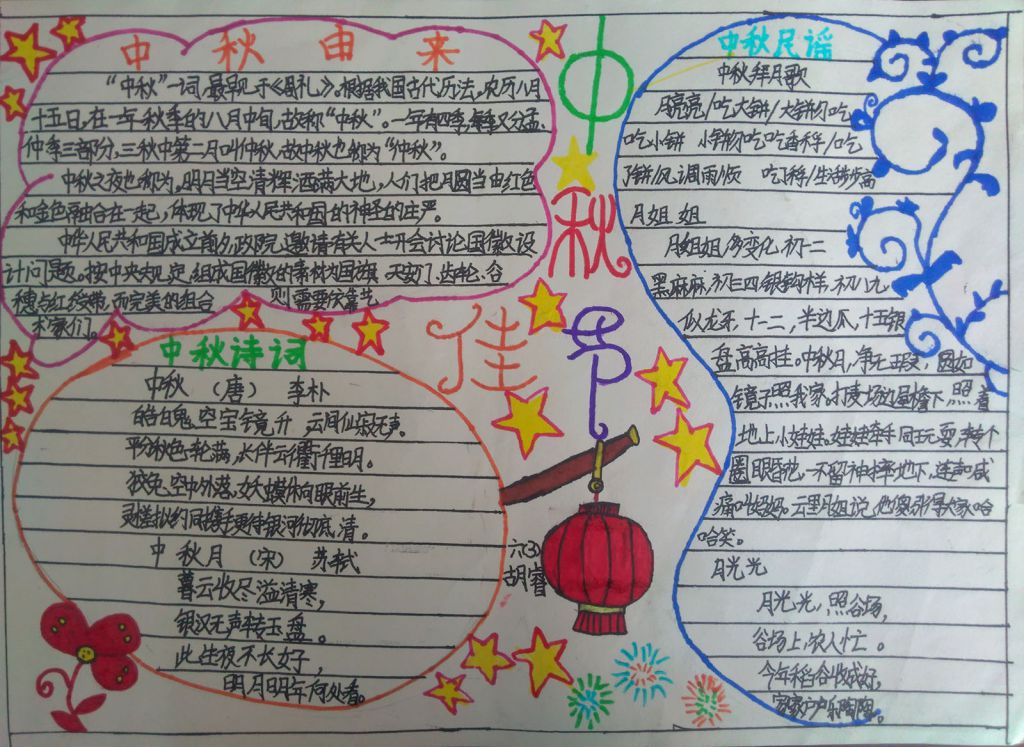 中秋由来
“中秋”一词,最早见于《周礼》。根据我国古代历法,农历八月
十五日,在一年秋季的八月中旬,故称“中秋”。一年有四季,每季又分孟、
仲、季三部分,三秋中第二月叫仲秋,故中秋也称为“仲秋”。
中秋之夜也称为,明月当空清辉洒满大地,人们把月圆当由红色
和金色融合在一起,体现了中华人民共和国的神圣的庄严。
中华人民共和国成立前夕,政院邀请有关人士开会讨论国徽设
计问题。按中央规定,组成国徽的素材为国旗 天安门、齿轮、谷
穗点红绶带,而完美的组合 则需要伏靠艺
术家们。
中秋佳节
中秋诗词
中秋 (唐) 李朴
皓白魄空宝镜升 云间仙籁无声。
平分秋色一轮满,长伴云衢千里明。
狡兔空中外落,妖蟆休向眼前生,
灵槎拟约同携手更待银河彻底清。
中秋月 (宋) 苏轼
暮云收尽溢清寒,
银汉无声转玉盘。
此生夜不长好,
明月明年何处看。
六(3)
胡睿
中秋民谣
中秋拜月歌
月亮亮/吃大饼/大饼勿吃
吃小饼 小饼勿吃吃香稃/吃
了饼/风调雨/顺 吃了稃/生活步步高
月姐姐
月姐姐,多变化,初一二
黑麻麻,初三四银钩样,初八九
似龙牙,十一二,半边瓜,十五银
盘高高挂。中秋月,净无瑕,圆如
镜子照我家,打麦场边屋檐下,照着
地上小娃娃,娃娃牵手同玩耍,转个
圈眼昏花,一不留神摔地下,连声喊
痛叫妈妈,云里月姐说他傻,引得大家哈
哈笑。
月光光
月光光,照谷场,
谷场上,农人忙。
今年稻谷收成好,
家家户户乐陶陶。